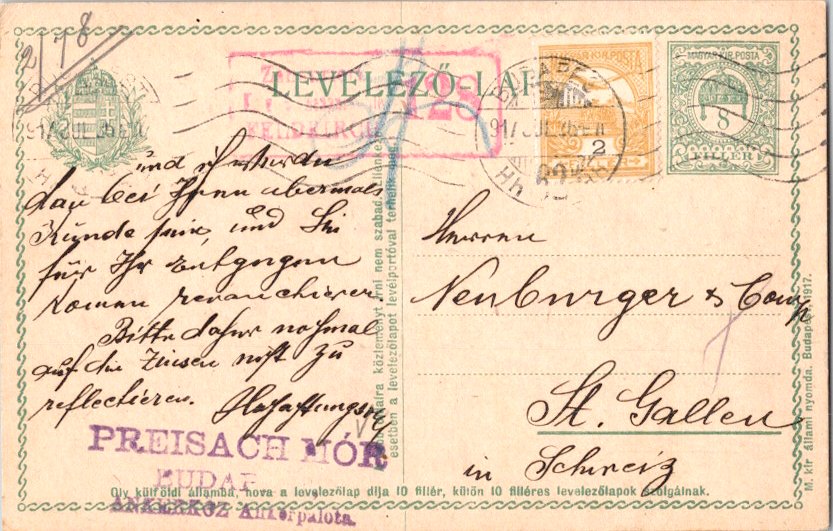 2/78
LEVELEZŐ-LAP
MAGYAR KIR. POSTA
8
FILLÉR
MAGYAR KIR. POSTA
2
BUDAPEST
917 JUL
Zensuriert
FELDKIRCH
128
und ich werden
dan bei Ihnen abermals
Kunde sein, und Sie
für Ihr Entgegen
komen revanchieren.
Bitte daher nochmal
auf die Zinsen nicht zu
reflectieren. Hochachtungsvoll
Herren
Neuburger & Comp
St. Gallen
in Schweiz
PREISACH MÓR
BUDAP
ANKERKÖZ Ankerpalota.
közleményt írni nem szabad
esetben a levelezőlapot levélportóval terhelik meg.
Oly külföldi államba, hova a levelezőlap díja 10 fillér, külön 10 filléres levelezőlapok szolgálnak.
M. kir. állami nyomda. Budapest, 1917.